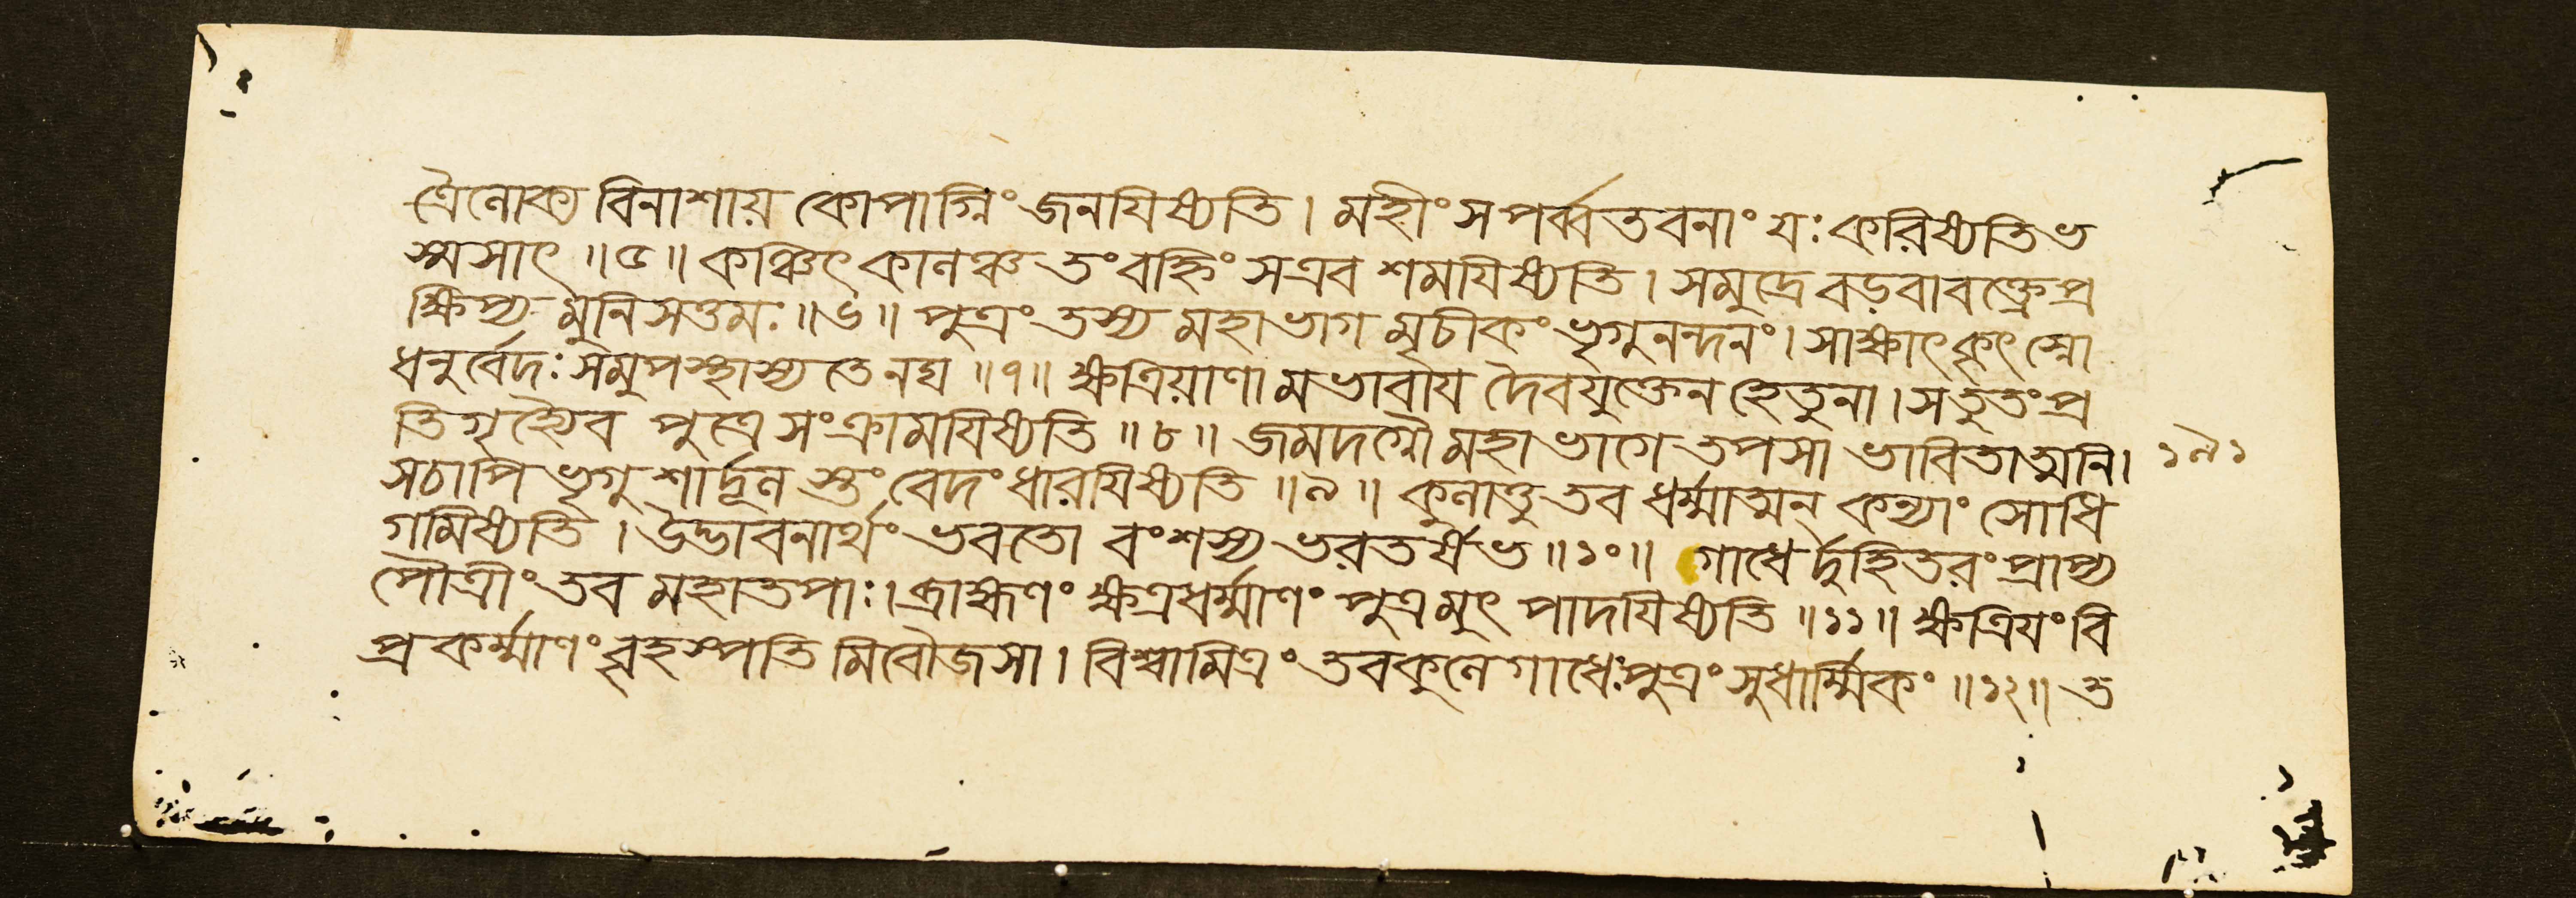 ত্রৈলোক্য বিনাশায় কোপাগ্নিং জনযিষ্যতি। মহীং সপর্ব্বতবনাং যঃ করিষ্যতি ভ
স্মসাৎ ॥৫॥ কঞ্চিৎ কালঞ্চ তং বহ্নিং সএব শমযিষ্যতি। সমুদ্রে বড়বাবক্ত্রে প্র
ক্ষিপ্য মুনিসত্তমঃ ॥৬॥ পুত্রং তস্য মহাভাগ মৃচীকং ভৃগুনন্দনং। সাক্ষাৎ কৃৎস্নো
ধনুর্বেদঃ সমুপস্থাস্যতেনঘ ॥৭॥ ক্ষত্রিয়াণামভাবায দৈবযুক্তেন হেতুনা। সতুতং প্র
তিগৃহ্যৈব পুত্রে সংক্রামযিষ্যতি ॥৮॥ জমদগ্নৌ মহাভাগে তপসা ভাবিতাত্মনি। ১৯১
সচাপি ভৃগুশার্দূল স্তং বেদং ধারযিষ্যতি ॥৯॥ কুলাত্তু তব ধর্ম্মাত্মন্ কন্যাং সোধি
গমিষ্যতি। উদ্ভাবনার্থং ভবতো বংশস্য ভরতর্ষভ ॥১০॥ গাধের্দুহিতরং প্রাপ্য
পৌত্রীং তব মহাতপাঃ। ব্রাহ্মণং ক্ষত্রধর্ম্মাণং পুত্রমুৎপাদযিষ্যতি ॥১১॥ ক্ষত্রিযং বি
প্রকর্ম্মাণং বৃহস্পতিমিবৌজসা। বিশ্বামিত্রং তবকুলে গাধেঃ পুত্রং সুধার্ম্মিকং ॥১২॥ ত